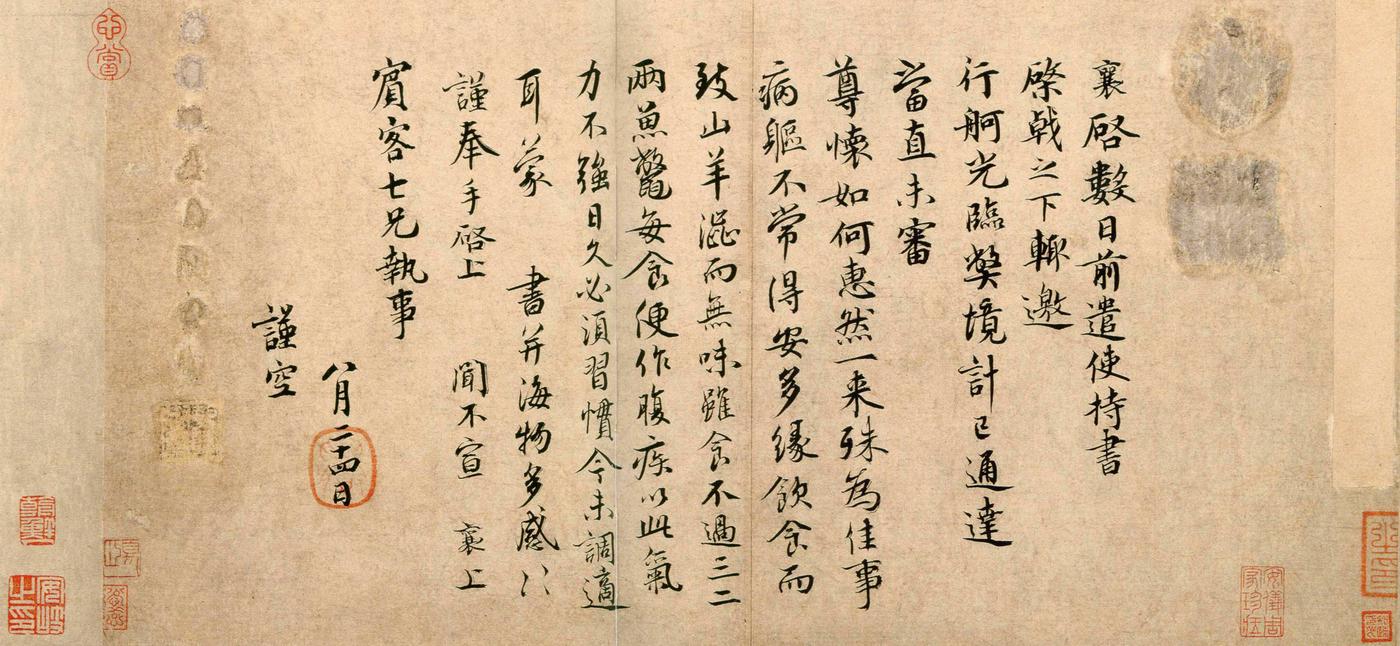 襄啓數日前遣使持書
棨戟之下輙邀
行舸光臨獘境計已通達
當直未審
尊懷如何惠然一来殊為佳事
病軀不常得安多緣飲食而
致山羊澀而無味雖食不過三二
兩魚鼈每食便作腹疾以此氣
力不強日久必須習慣今未調適
耳蒙 書并海物多感〻
謹奉手啓上 聞不宣 襄上
賔客七兄執事
八月二十四日
謹空